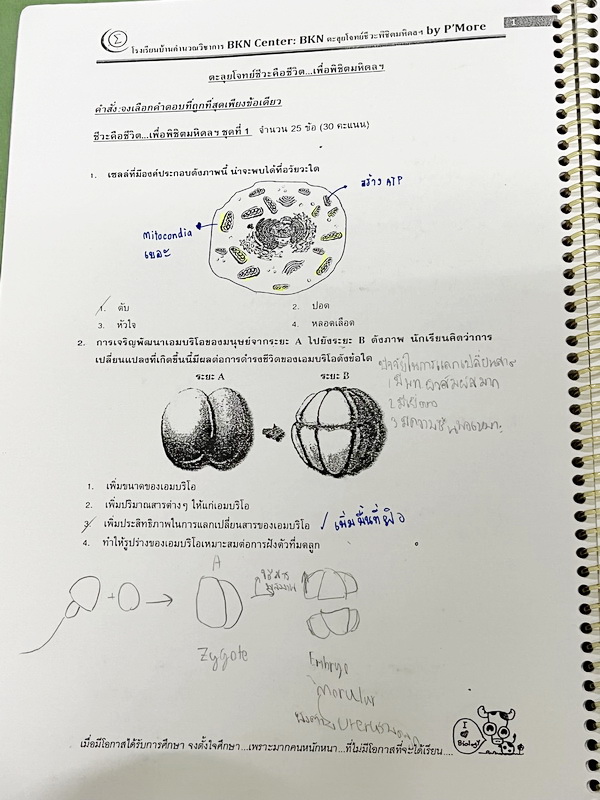 โรงเรียนบ้านคำนวณวิชาการ BKN Center: BKN ตะลุยโจทย์ชีวะพิชิตมหิดลฯ by P'More
1
ตะลุยโจทย์ชีวะคือชีวิต...เพื่อพิชิตมหิดลฯ
คำสั่ง:จงเลือกคำตอบที่ถูกที่สุดเพียงข้อเดียว
ชีวะคือชีวิต...เพื่อพิชิตมหิดลฯ ชุดที่ 1 จำนวน 25 ข้อ (30 คะแนน)
1. เซลล์ที่มีองค์ประกอบดังภาพนี้ น่าจะพบได้ที่อวัยวะใด
สร้าง ATP
Mitocondia
เยอะ
1. ตับ 2. ปอด
3. หัวใจ 4. หลอดเลือด
2. การเจริญพัฒนาเอมบริโอของมนุษย์จากระยะ A ไปยังระยะ B ดังภาพ นักเรียนคิดว่าการ
เปลี่ยนแปลงที่เกิดขึ้นนี้มีผลต่อการดำรงชีวิตของเอมบริโอดังข้อใด
ระยะ A ระยะ B
ปัจจัยในการแลกเปลี่ยนสาร
1. เพิ่มขนาดของเอมบริโอ
2. เพิ่มปริมาณสารต่างๆ ให้แก่เอมบริโอ
3. เพิ่มประสิทธิภาพในการแลกเปลี่ยนสารของเอมบริโอ เพิ่มพื้นที่ผิว
4. ทำให้รูปร่างของเอมบริโอเหมาะสมต่อการฝังตัวที่มดลูก
A
+
Zygote
Embryo
Morular
uterus
I
Biology
เมื่อมีโอกาสได้รับการศึกษา จงตั้งใจศึกษา...เพราะมากคนหนักหนา...ที่ไม่มีโอกาสที่จะได้เรียน....